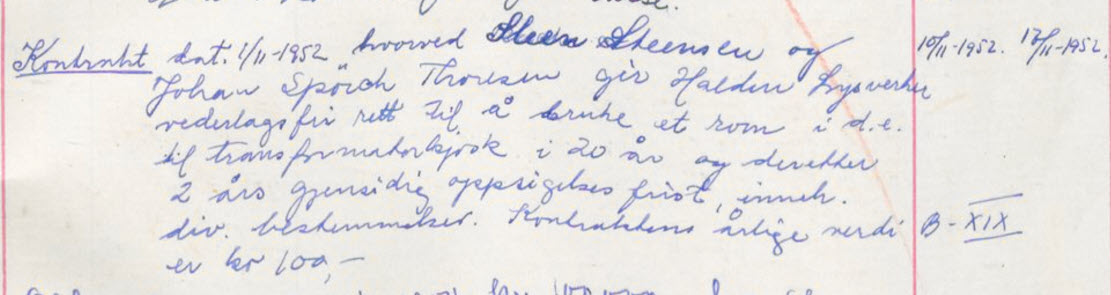 Kontrakt dat. 1/11-1952 hvorved Steen Steensen og 10/11-1952. 17/11-1952.
Johan Spörck Thoresen gir Halden Lysverker
vederlagsfri rett til å bruke et rom i d.e.
til transformatorkjosk i 20 år og deretter
2 års gjensidig oppsigelses frist, inneh.
div. bestemmelser. Kontraktens årlige verdi B-XIX
er kr 100,-